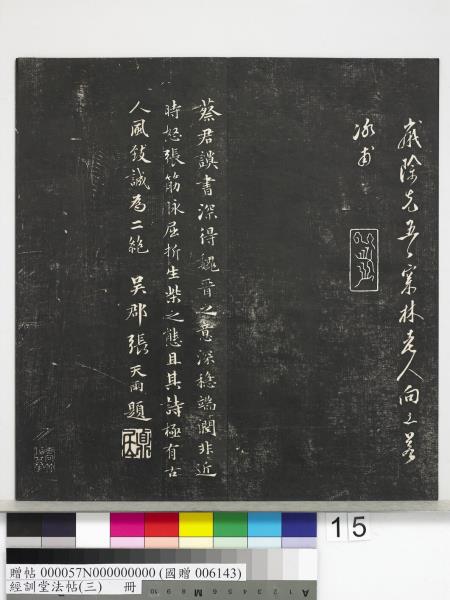 歲除先五
寒林老人向上
冰甫
蔡君謨書深得魏晉之意深穩端潤非近
時怒張筋脉屈折生柴之態且其詩極有古
人風致誠為二絕 吳郡張天雨題
15
贈帖 000057N000000000 (國贈 006143)
經訓堂法帖(三) 冊